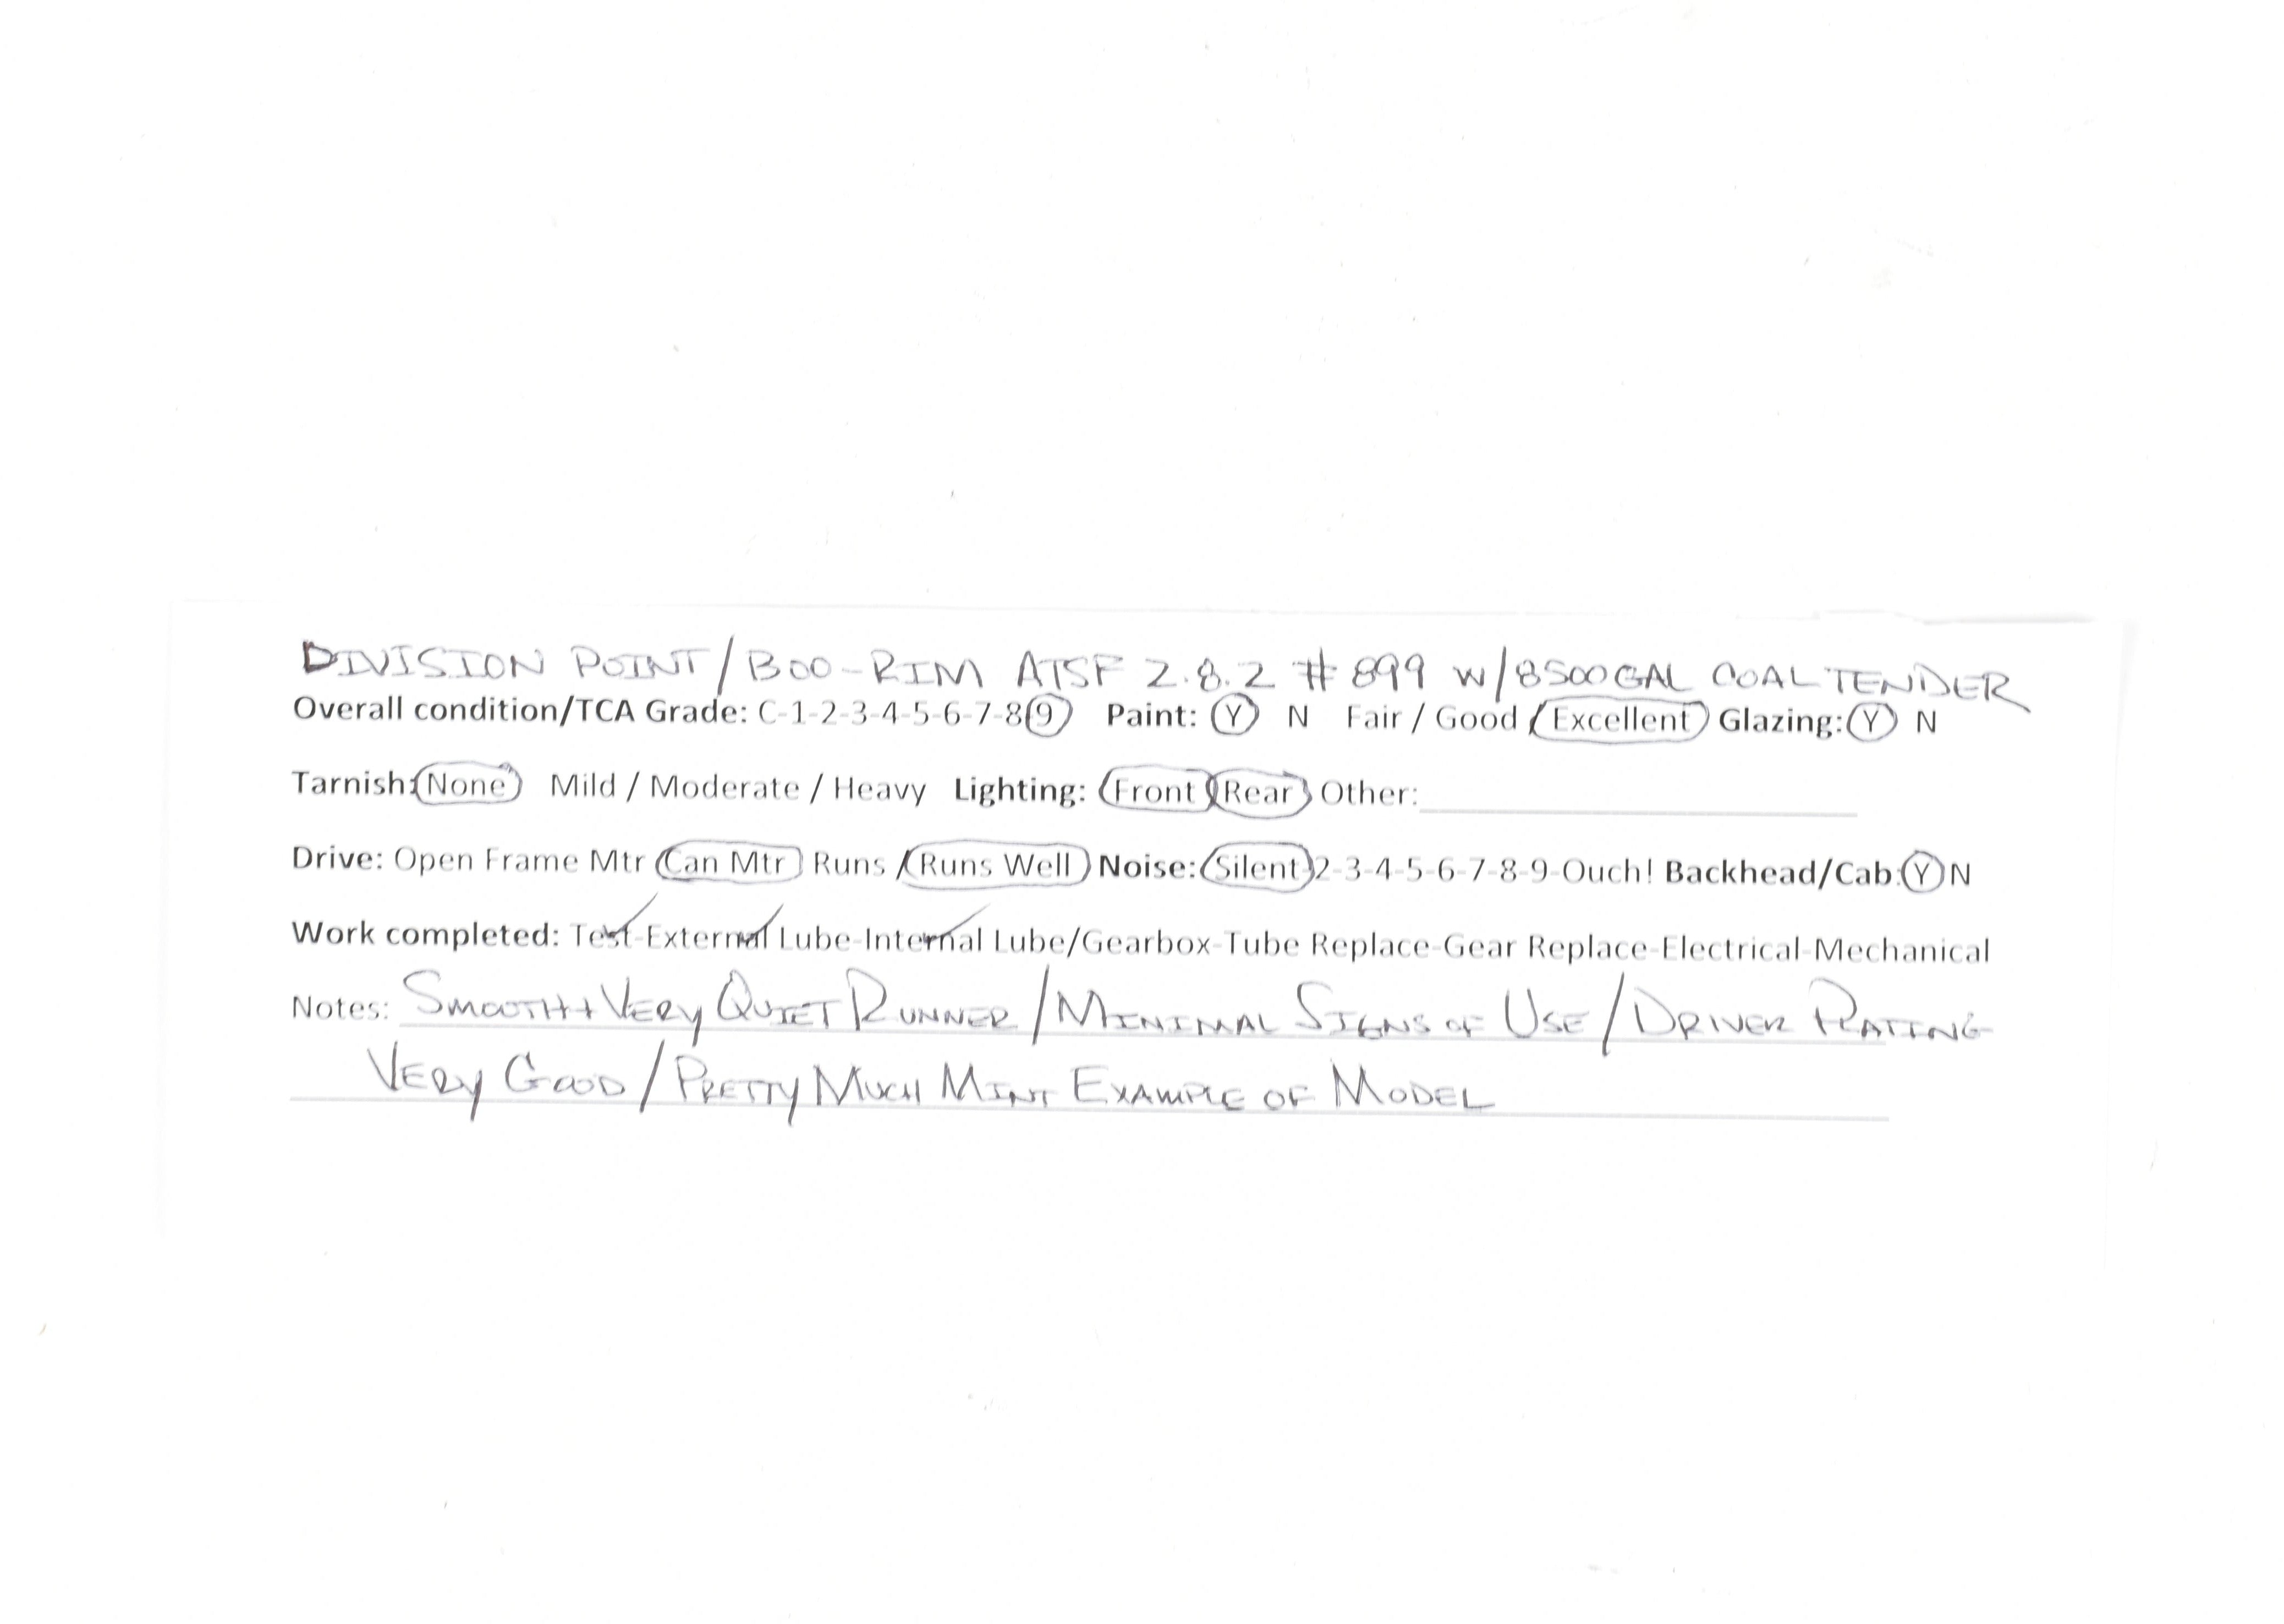 DIVISION POINT/BOO-RIM ATSF 2.8.2 #899 W/8500GAL COAL TENDER
Overall condition/TCA Grade: C-1-2-3-4-5-6-7-8-9 Paint: Y N Fair / Good / Excellent Glazing: Y N
Tarnish: None Mild / Moderate / Heavy Lighting: Front / Rear Other:
Drive: Open Frame Mtr / Can Mtr Runs / Runs Well Noise: Silent-2-3-4-5-6-7-8-9-Ouch! Backhead/Cab: Y N
Work completed: Test-External Lube-Internal Lube/Gearbox-Tube Replace-Gear Replace-Electrical-Mechanical
Notes: SMOOTH + VERY QUIET RUNNER / MINIMAL SIGNS OF USE / DRIVER PLATING
VERY GOOD / PRETTY MUCH MINT EXAMPLE OF MODEL